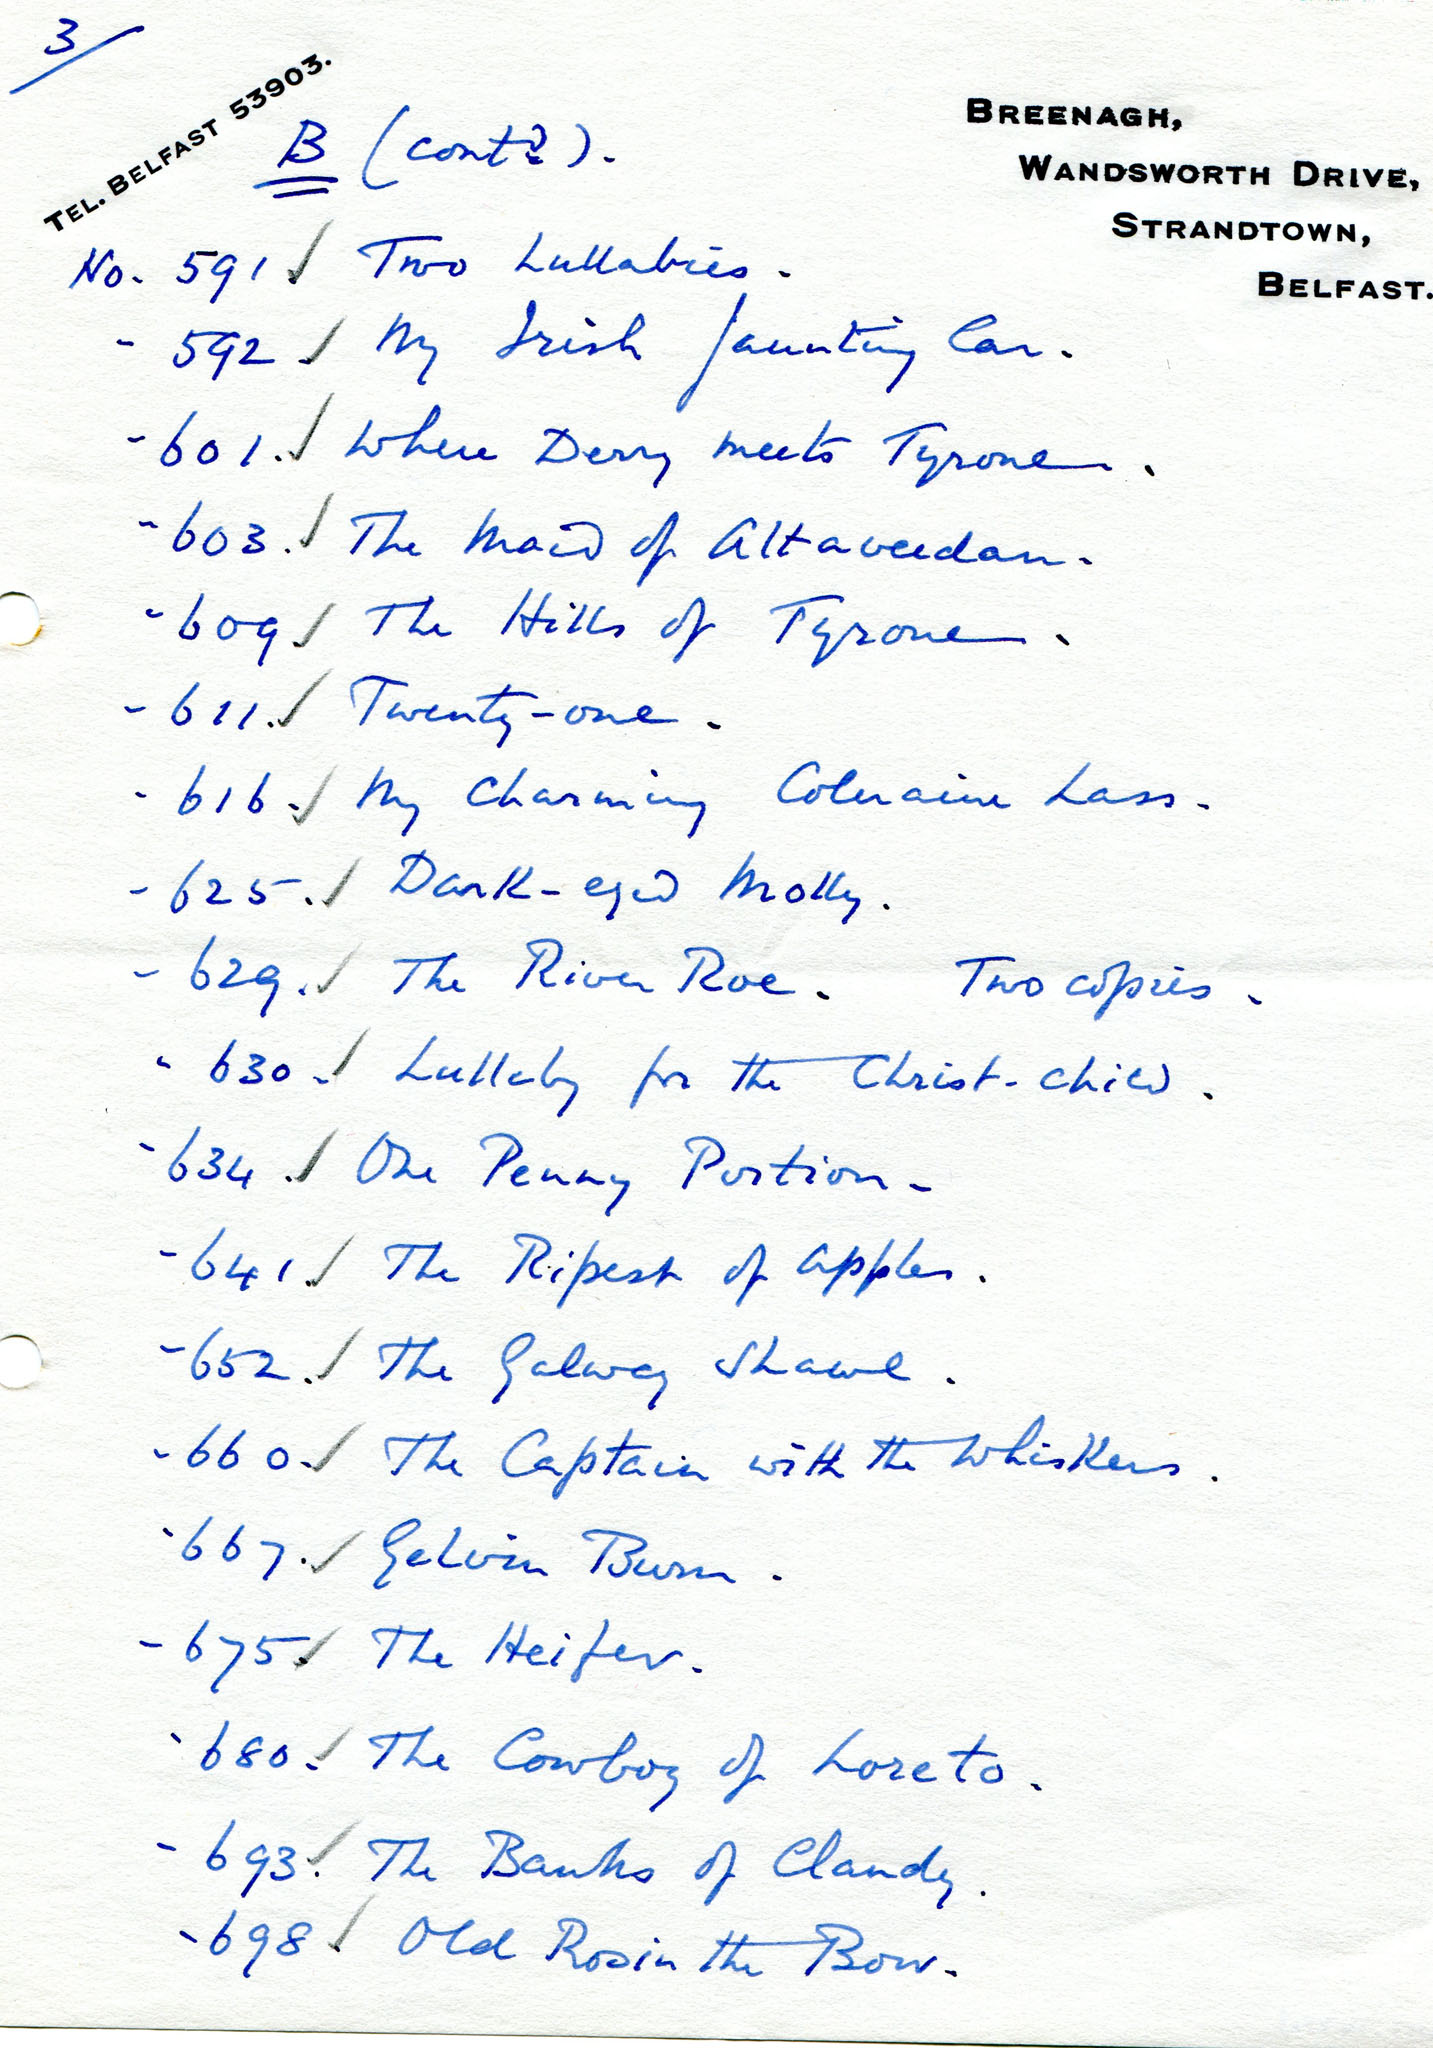 3/
TEL. BELFAST 53903.
BREENAGH,
WANDSWORTH DRIVE,
STRANDTOWN,
BELFAST.
B (contd).
No. 591 ✓ Two Lullabies.
- 592 ✓ My Irish Jaunting Car.
- 601. ✓ Where Derry meets Tyrone.
- 603. ✓ The Maid of Altaveedan.
- 609 ✓ The Hills of Tyrone.
- 611. ✓ Twenty-one.
- 616. ✓ My Charming Coleraine Lass.
- 625. ✓ Dark-eyed Molly.
- 629. ✓ The River Roe. Two copies.
- 630. ✓ Lullaby for the Christ-child.
- 634. ✓ One Penny Portion.
- 641. ✓ The Ripest of apples.
- 652. ✓ The Galway Shawl.
- 660. ✓ The Captain with the Whiskers.
- 667. ✓ Gelvin Burn.
- 675. ✓ The Heifer.
- 680. ✓ The Cowboy of Loreto.
- 693. ✓ The Banks of Claudy.
- 698. ✓ Old Rosin the Bow.